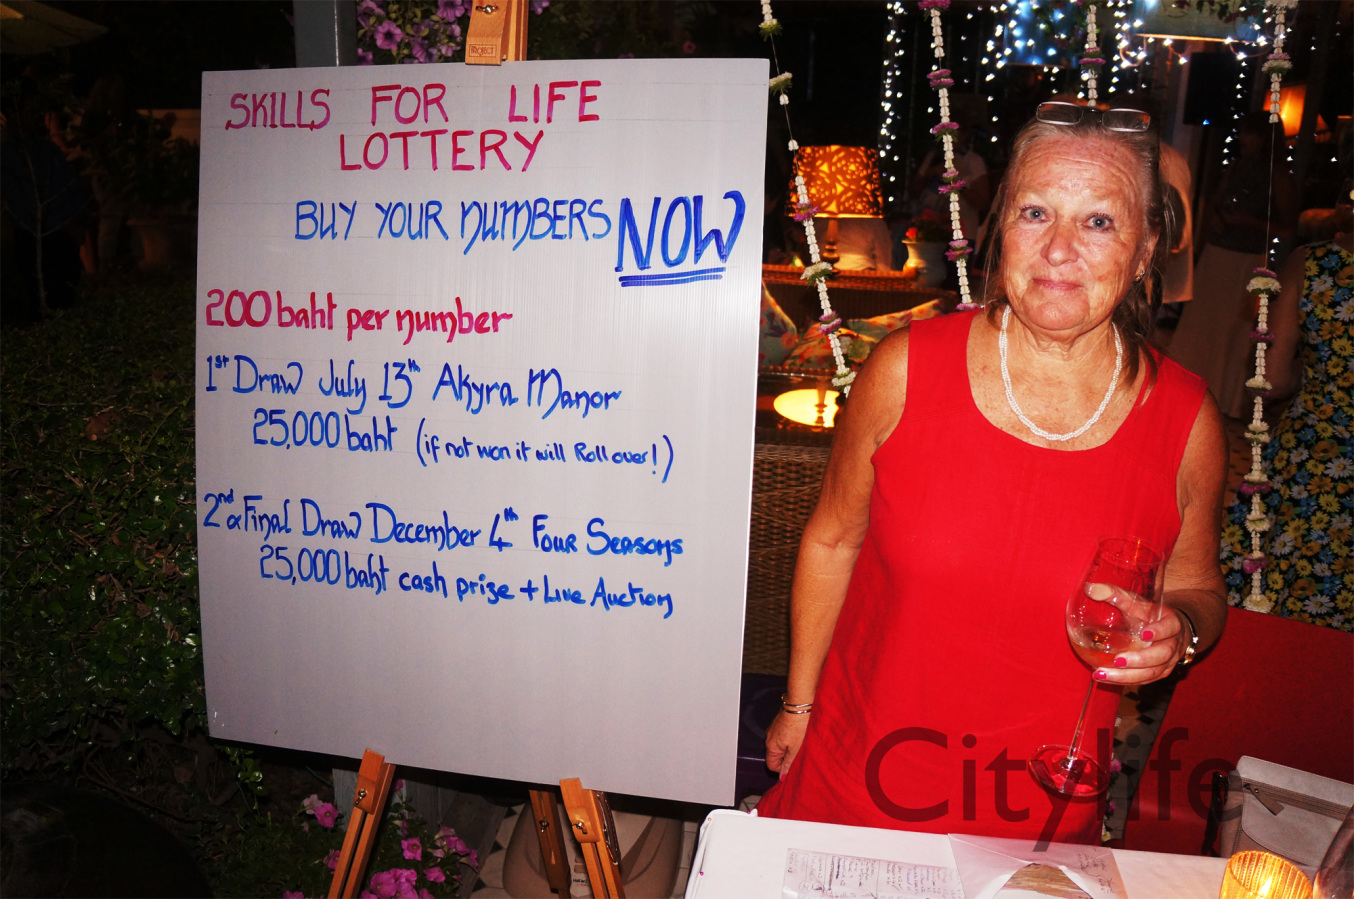 PROJECT
SKILLS FOR LIFE
LOTTERY
BUY YOUR NUMBERS NOW
200 baht per number
1st Draw July 13th Akyra Manor
25,000 baht (if not won it will Roll over!)
2nd & Final Draw December 4th Four Seasons
25,000 baht cash prize + Live Auction
Citylife